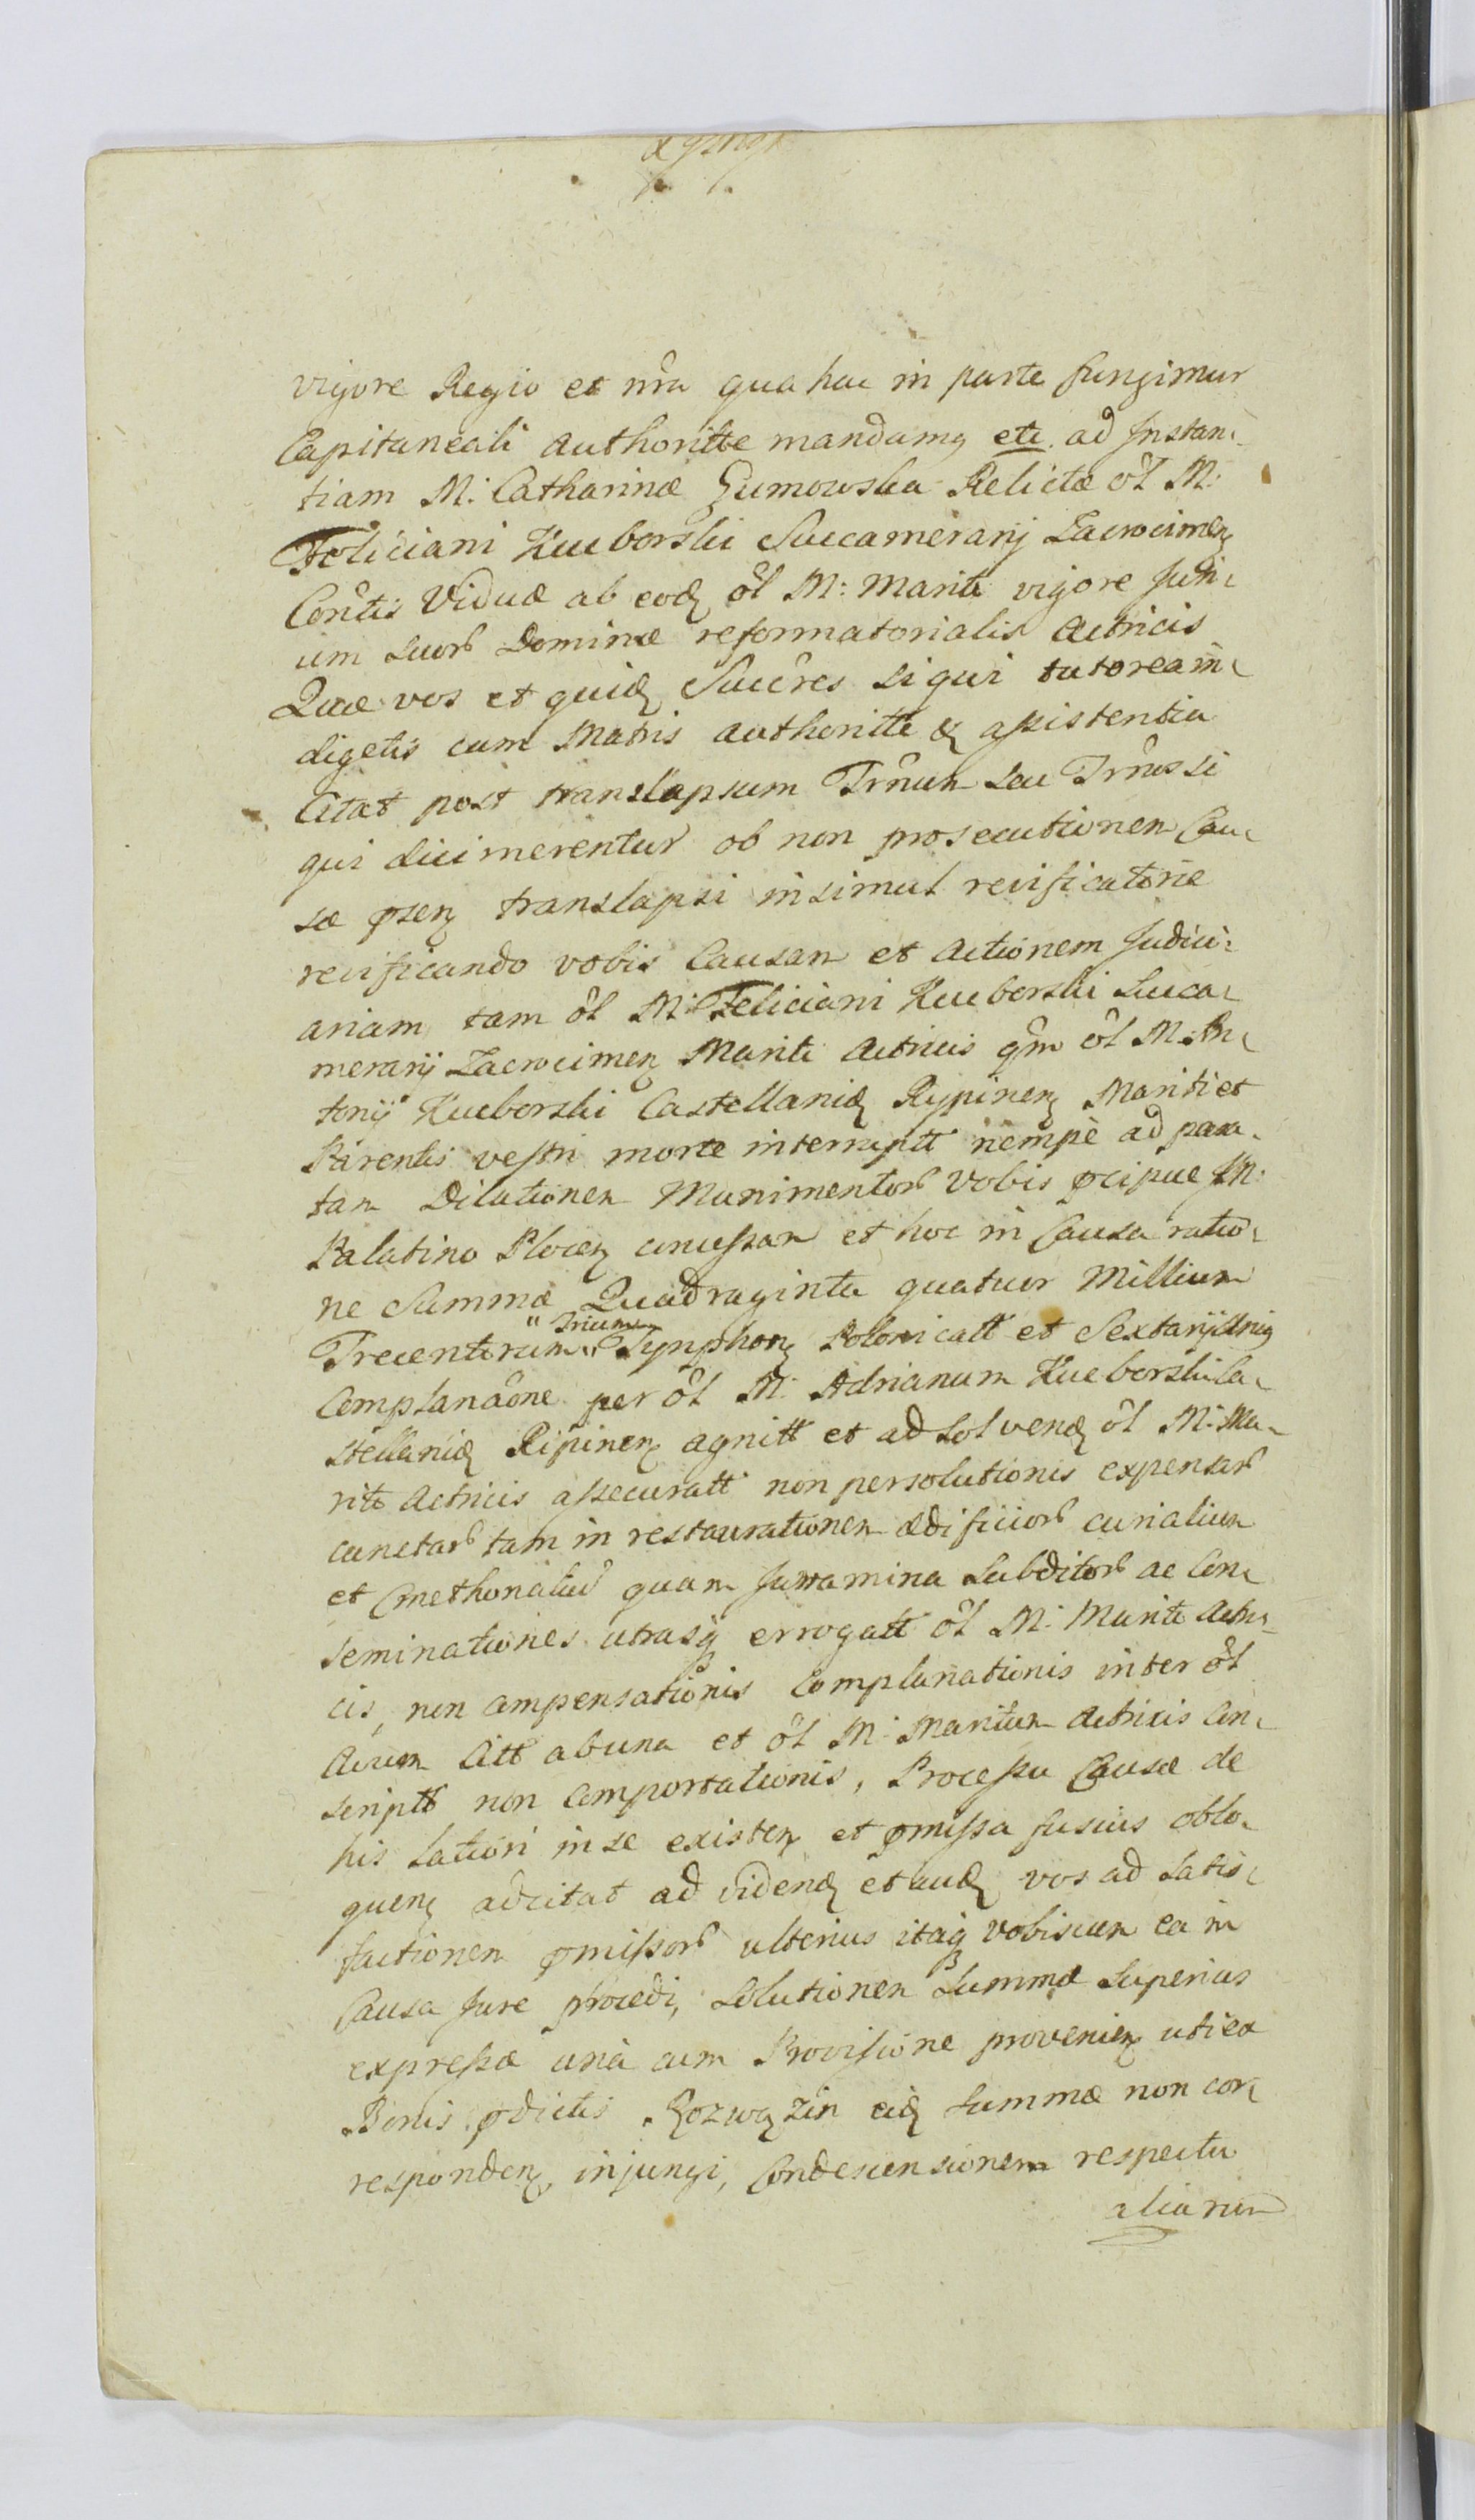 vigore Regio et nrã qua hac in parte fungimur
Capitaneali Authoritte mandamq etc. ad Instan-
tiam M: Catharinæ Gumowska Relictæ ol M:
Feliciani Kucborski Succamerarij Zacrocimen
Contis Viduæ ab eod ol M: Marito vigore Juri-
um suorb Dominæ reformatorialis Actricis
Quæ vos et quid Succres si qui tutorea in-
digetis cum Matris authoritte & assistentia
Citat post translapsum Trnum seu Trnos si
qui dici merentur ob non prosecutionem Cau-
sæ psen translapsi insimul reificatorie
reificando vobis Causam et Actionem Judici-
ariam tam ol M: Feliciani Kucborski Succa-
merarij Zacrocimen Mariti Actricis qm ol M: An-
tonij Kucborski Castellanid Rypinen Mariti et
Parentis vestri morte interruptt nempè ad para-
tam Dilationem Munimentorb Vobis pcipue Jn:
Palatino Plocen concessam et hoc in Causa ratio-
ne Summæ Quadraginta quatuor Millium
Trecentorum " Trium " Tynphon Polonicatt et Sextarij Uniq
Complanaone per ol M: Adrianum Kucborski Ca-
stellanid Ripinen agnitt et ad solvend ol M: Ma-
rito Actricis assecuratt non persolutionis expensarb
cunctarb tam in restaurationem ædificiorb curialium
et Cmethonaliu quam Juramina Subditorb ac Con-
seminationes utrasq errogatt ol M: Mariti Actri-
cis, non compensationis Complanationis inter ol
Avum Citt ab una et ol M: Maritum Actricis Con-
scriptt non comportationis, Processu Causæ de
his latiori in se existen et pmissa fusius oblo-
quen adcitat ad videnđ et auđ vos ad satis-
factionem pmissorb ulterius itaq vobiscum ea in
Causa Jure procedi, Solutionem Summæ superius
expressæ unà cum Provisione provenien uti ex
Bonis pdictis Rozwozin eid Summæ non cor-
responden injungi, Condescensionem respectu
aliarum